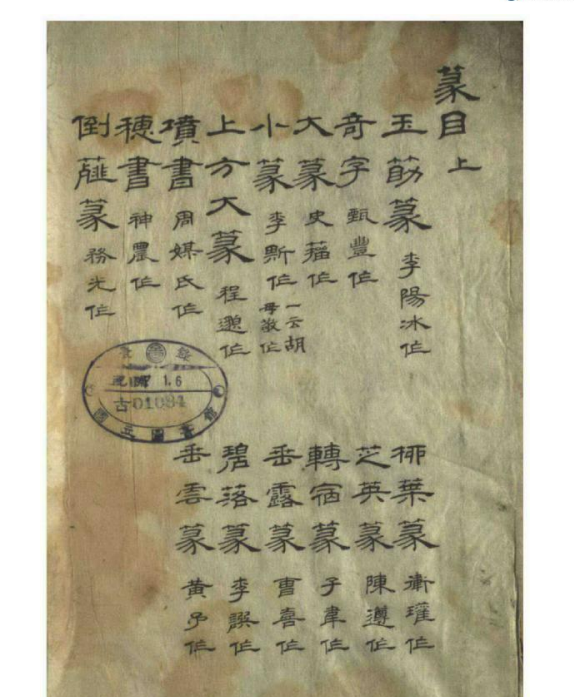 篆目上
玉筯篆 李陽冰作
奇字 甄豐作
大篆 史籀作
小篆 李斯作 一云胡母敬作
上方大篆 程邈作
墳書 周媒氏作
穗書 神農作
倒薤篆 務光作
柳葉篆 衛瓘作
芝英篆 陳遵作
轉宿篆 子韋作
垂露篆 曹喜作
碧落篆 李譔作
垂雲篆 黃 作
1.6
國立圖書館